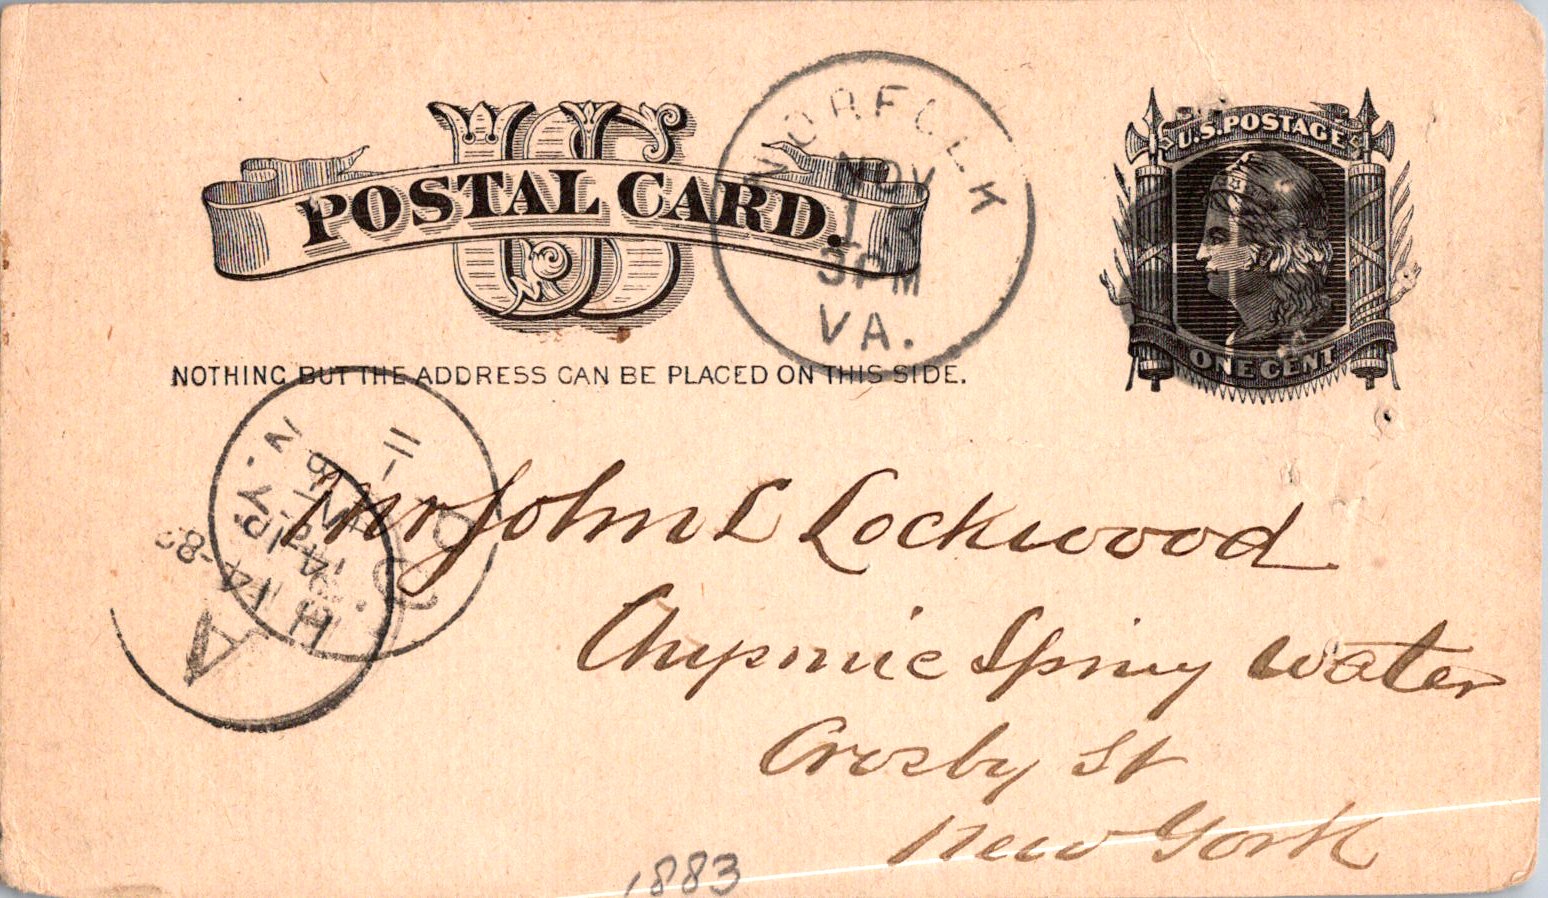 US
POSTAL CARD.
NORFOLK
NOV
13
3PM
VA.
U.S. POSTAGE
ONE CENT
NOTHING BUT THE ADDRESS CAN BE PLACED ON THIS SIDE.
N.Y.
11
14
Mr John L Lockwood
Spring Water
Crosby St
New York
1883